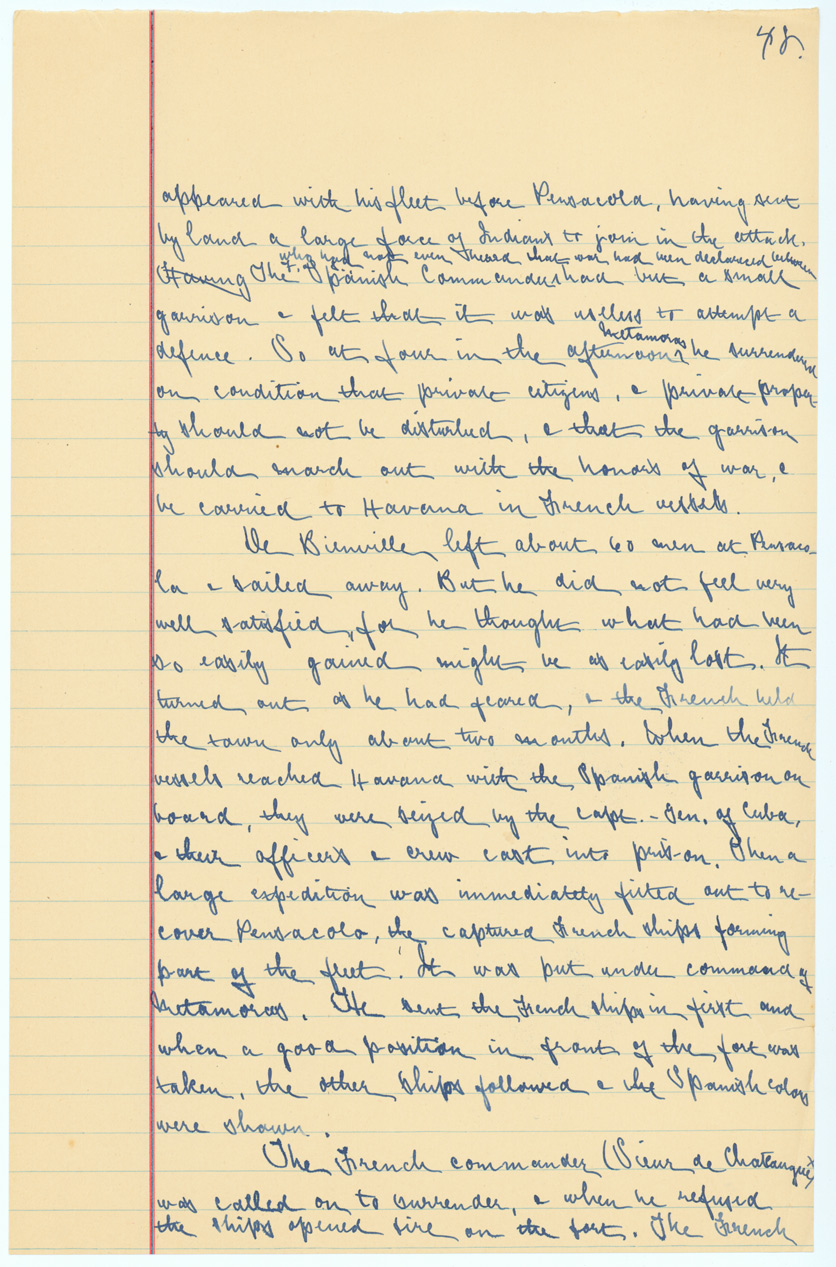 48.
appeared with his fleet before Pensacola, having sent
by land a large force of Indians to join in the attack.
who had not even heard that war had been declared between
Having The Spanish Commander had but a small
garrison & felt that it was useless to attempt a
Metamoras
defence. So at four in the afternoon he surrendered
on condition that private citizens, & private proper-
ty should not be disturbed, & that the garrison
should march out with the honors of war, &
be carried to Havana in French vessels.
De Bienville left about 60 men at Pensaco-
la & sailed away. But he did not feel very
well satisfied, for he thought what had been
so easily gained might be as easily lost. It
turned out as he had feared, & the French held
the town only about two months. When the French
vessels reached Havana with the Spanish garrison on
board, they were seized by the Capt.-Gen. of Cuba,
& their officers & crew cast into prison. Then a
large expedition was immediately fitted out to re-
cover Pensacola, the captured French ships forming
part of the fleet. It was put under command of
Metamoras. He sent the French ships in first and
when a good position in front of the fort was
taken, the other ships followed & the Spanish colors
were shown.
The French commander (Sieur de Chateaugué)
was called on to surrender, & when he refused
the ships opened fire on the fort. The French